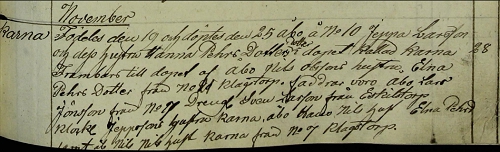 November
Karna Föddes den 19 och döptes den 25 åbo å No 10 Jeppa Larsson
och dess hustru Hanna Pehrs Dotter dopet kallas Karna 28
Frambars till dopet af åbo Nils Olssons hustru Elna
Pehrs Dotter från No 14 Klagstorp. faddrar voro åbo Lars
Jönsson från No 7 Dreng Sven Larsson från Eskilstorp
Jeppssons hustru Karna, åbo Nils hust Elna Pehrs
Nils Nils hust Karna från No 7 Klagstorp.